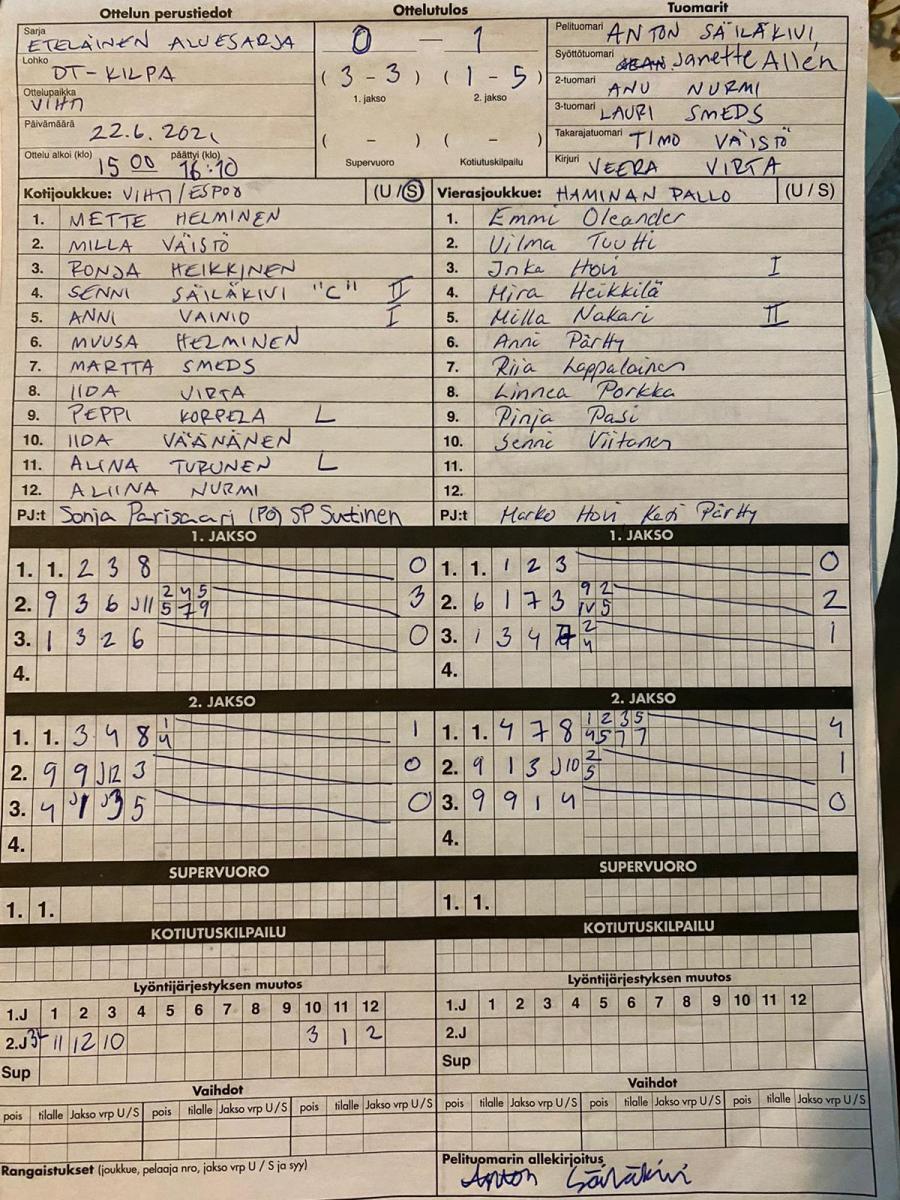 Ottelun perustiedot Ottelutulos Tuomarit
Sarja ETELÄINEN ALUESARJA
Lohko DT-KILPA
Ottelupaikka VIHTI
Päivämäärä 22.6.2021
Ottelu alkoi (klo) 15 00 päättyi (klo) 16:10
0 — 1
( 3 - 3 ) ( 1 - 5 )
1. jakso 2. jakso
( - ) ( - )
Supervuoro Kotiutuskilpailu
Pelituomari ANTON SÄILÄKIVI
Syöttötuomari Janette Allén
2-tuomari ANU NURMI
3-tuomari LAURI SMEDS
Takarajatuomari TIMO VÄISTÖ
Kirjuri VEERA VIRTA
Kotijoukkue: VIHTI/ESPOO (U/S)
1. METTE HELMINEN
2. MILLA VÄISTÖ
3. RONJA HEIKKINEN
4. SENNI SÄILÄKIVI "C" II
5. ANNI VAINIO I
6. MUUSA HELMINEN
7. MARTTA SMEDS
8. IIDA VIRTA
9. PEPPI KORPELA L
10. IIDA VÄÄNÄNEN
11. ALINA TURUNEN L
12. ALIINA NURMI
PJ:t Sonja Parissaari (PO) SP Suutinen
Vierasjoukkue: HAMINAN PALLO (U/S)
1. Emmi Oleander
2. Vilma Tuutti
3. Inka Hovi I
4. Mira Heikkilä
5. Milla Nakari II
6. Anni Pärtty
7. Riia Lappalainen
8. Linnea Porkka
9. Pinja Pasi
10. Senni Viitanen
11.
12.
PJ:t Marko Hovi Kati Pärtty
1. JAKSO
1. 1. 2 3 8 0
2. 9 3 6 J11 2 4 5 5 7 9 3
3. 1 3 2 6 0
4.
1. JAKSO
1. 1. 1 2 3 0
2. 6 1 7 3 9 2 IV 5 2
3. 1 3 4 2 4 1
4.
2. JAKSO
1. 1. 3 4 8 1 4 1
2. 9 9 J12 3 0
3. 4 J1 J3 5 0
4.
2. JAKSO
1. 1. 4 7 8 1 2 3 5 4 5 7 7 4
2. 9 1 3 J10 2 5 1
3. 9 9 1 4 0
4.
SUPERVUORO
1. 1.
SUPERVUORO
1. 1.
KOTIUTUSKILPAILU
KOTIUTUSKILPAILU
Lyöntijärjestyksen muutos
1.J 1 2 3 4 5 6 7 8 9 10 11 12
2.J 11 12 10 3 1 2
Sup
Lyöntijärjestyksen muutos
1.J 1 2 3 4 5 6 7 8 9 10 11 12
2.J
Sup
Vaihdot
pois tilalle Jakso vrp U/S pois tilalle Jakso vrp U/S pois tilalle Jakso vrp U/S
Vaihdot
pois tilalle Jakso vrp U/S pois tilalle Jakso vrp U/S pois tilalle Jakso vrp U/S
Rangaistukset (joukkue, pelaaja nro, jakso vrp U / S ja syy)
Pelituomarin allekirjoitus
Anton Säiläkivi